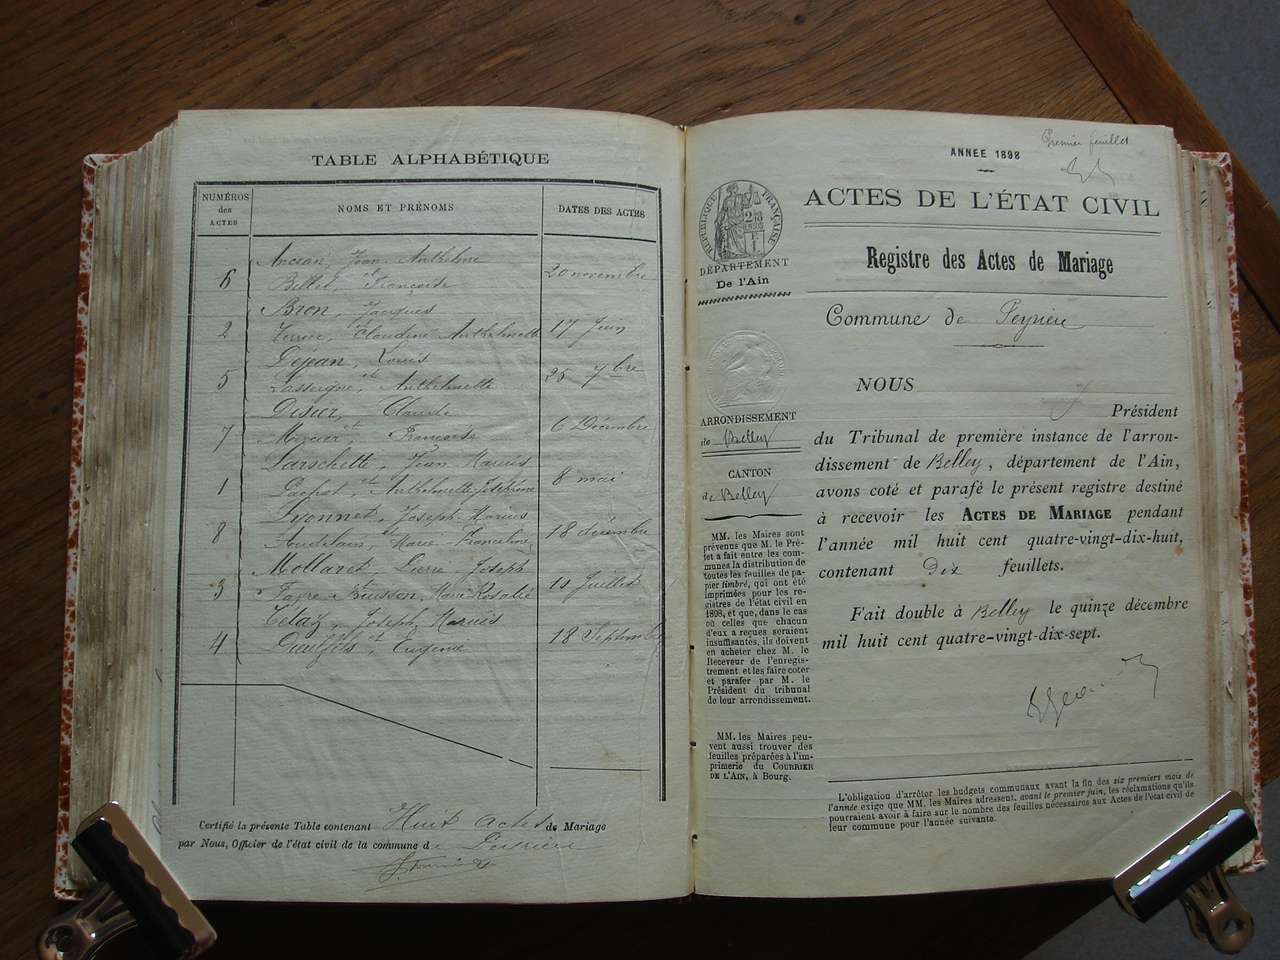 TABLE ALPHABÉTIQUE
NUMÉROS
des
ACTES
NOMS ET PRÉNOMS
DATES DES ACTES
Ancian, Jean Anthelme
6 Bellet, Françoise 20 novembre
Bron, Jacques
2 Claudine Anthelmette 17 Juin
Louis
5 et Anthelmette 25 7bre
Claude
7 Mercier, et Françoise 6 Décembre
Jean Marius
1 et Anthelmette Joséphine 8 mai
Lyonnet, Joseph Marius
8 Marie Franceline 18 décembre
Mollaret, Pierre Joseph
3 Favre Buisson, Marie Rosalie Juillet
Joseph Marius
4 et Eugénie 18 Septembre
Certifié la présente Table contenant Huit actes de Mariage
par Nous, Officier de l'état civil de la commune de Peyrieu
Premier feuillet
ANNÉE 1898
ACTES DE L'ÉTAT CIVIL
RÉPUBLIQUE FRANÇAISE
DÉPARTEMENT
De l'Ain
Registre des Actes de Mariage
Commune de Peyrieu
ARRONDISSEMENT
de Belley
CANTON
de Belley
MM. les Maires sont
prévenus que M. le Pré-
fet a fait entre les com-
munes la distribution de
toutes les feuilles de pa-
pier timbré, qui ont été
imprimées pour les re-
gistres de l'état civil en
1898, et que, dans le cas
où celles que chacun
d'eux a reçues seraient
insuffisantes, ils doivent
en acheter chez M. le
Receveur de l'enregis-
trement et les faire coter
et parafer par M. le
Président du tribunal
de leur arrondissement.
MM. les Maires peu-
vent aussi trouver des
feuilles préparées à l'im-
primerie du COURRIER
DE L'AIN, à Bourg.
NOUS
Président
du Tribunal de première instance de l'arron-
dissement de Belley, département de l'Ain,
avons coté et parafé le présent registre destiné
à recevoir les ACTES DE MARIAGE pendant
l'année mil huit cent quatre-vingt-dix-huit,
contenant Dix feuillets.
Fait double à Belley le quinze décembre
mil huit cent quatre-vingt-dix-sept.
L'obligation d'arrêter les budgets communaux avant la fin des six premiers mois de
l'année exige que MM. les Maires adressent, avant le premier juin, les réclamations qu'ils
pourraient avoir à faire sur le nombre des feuilles nécessaires aux Actes de l'état civil de
leur commune pour l'année suivante.